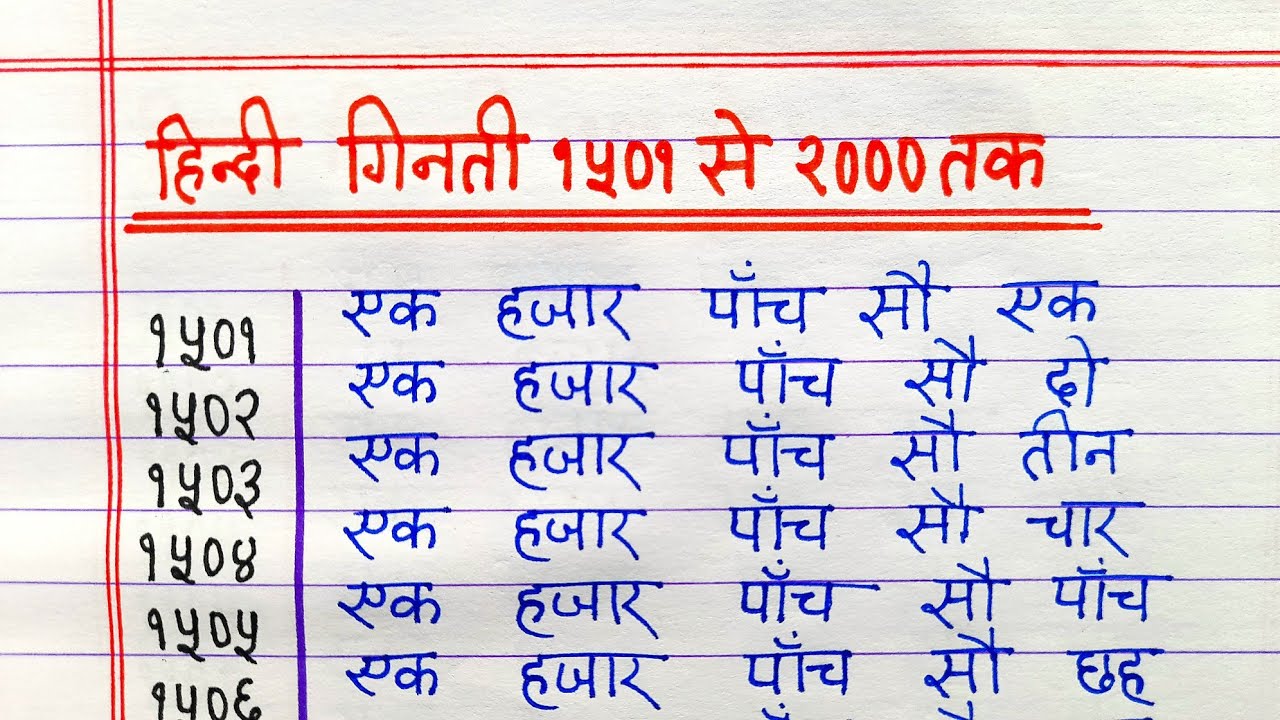 हिन्दी गिनती १५०१ से २००० तक
१५०१ एक हजार पाँच सौ एक
१५०२ एक हजार पाँच सौ दो
१५०३ एक हजार पाँच सौ तीन
१५०४ एक हजार पाँच सौ चार
१५०५ एक हजार पाँच सौ पाँच
१५०६ एक हजार पाँच सौ छह